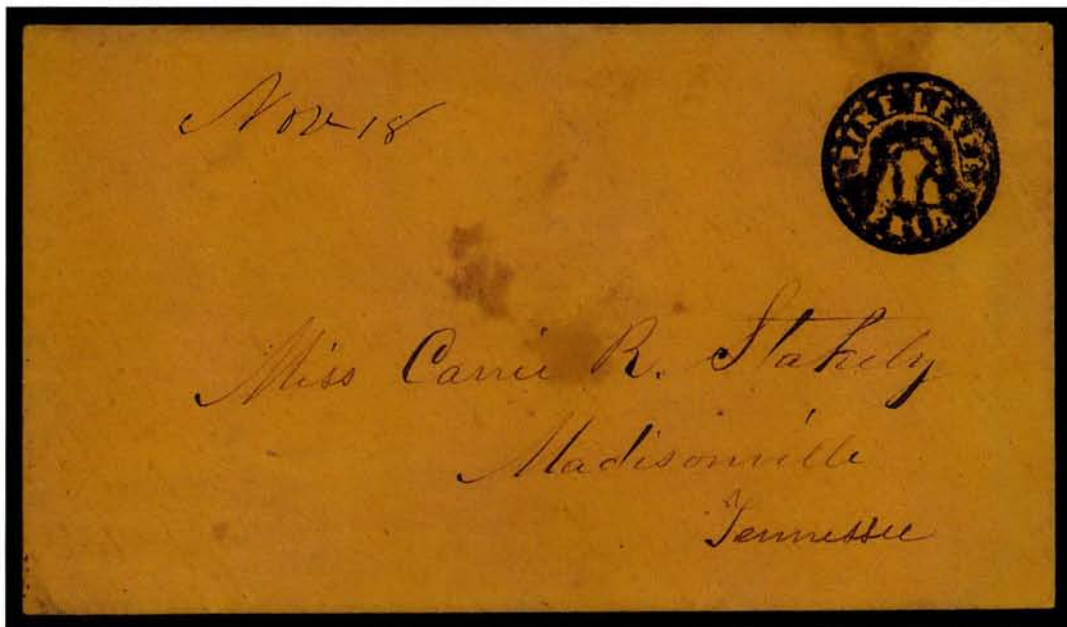 Nov 18
PINE LEVEL
ALA
Miss Carrie R. Stakely
Madisonville
Tennessee